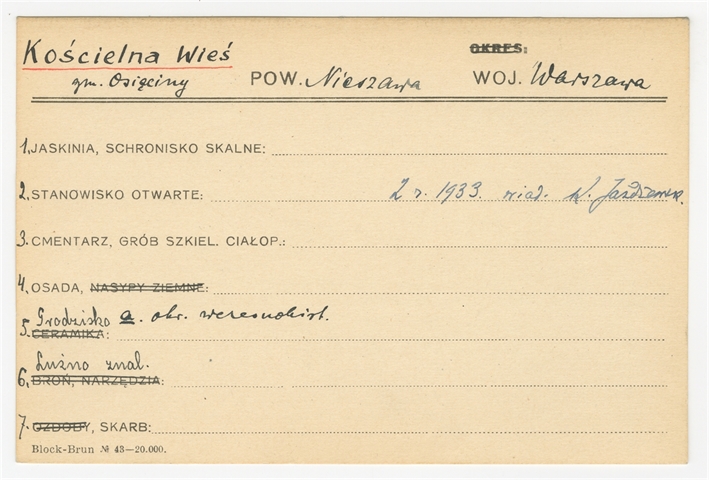 Kościelna Wieś
OKRES:
gm. Osięciny POW. Nieszawa WOJ. Warszawa
1. JASKINIA, SCHRONISKO SKALNE:
2. STANOWISKO OTWARTE: Z r. 1933. wiad. K. Jażdżewsk.
3. CMENTARZ, GRÓB SZKIEL. CIAŁOP.:
4. OSADA, NASYPY ZIEMNE:
Grodzisko a. okr. wczesnohist.
5. CERAMIKA:
Luźno znal.
6. BROŃ, NARZĘDZIA:
7. OZDOBY, SKARB:
Block-Brun № 43—20.000.